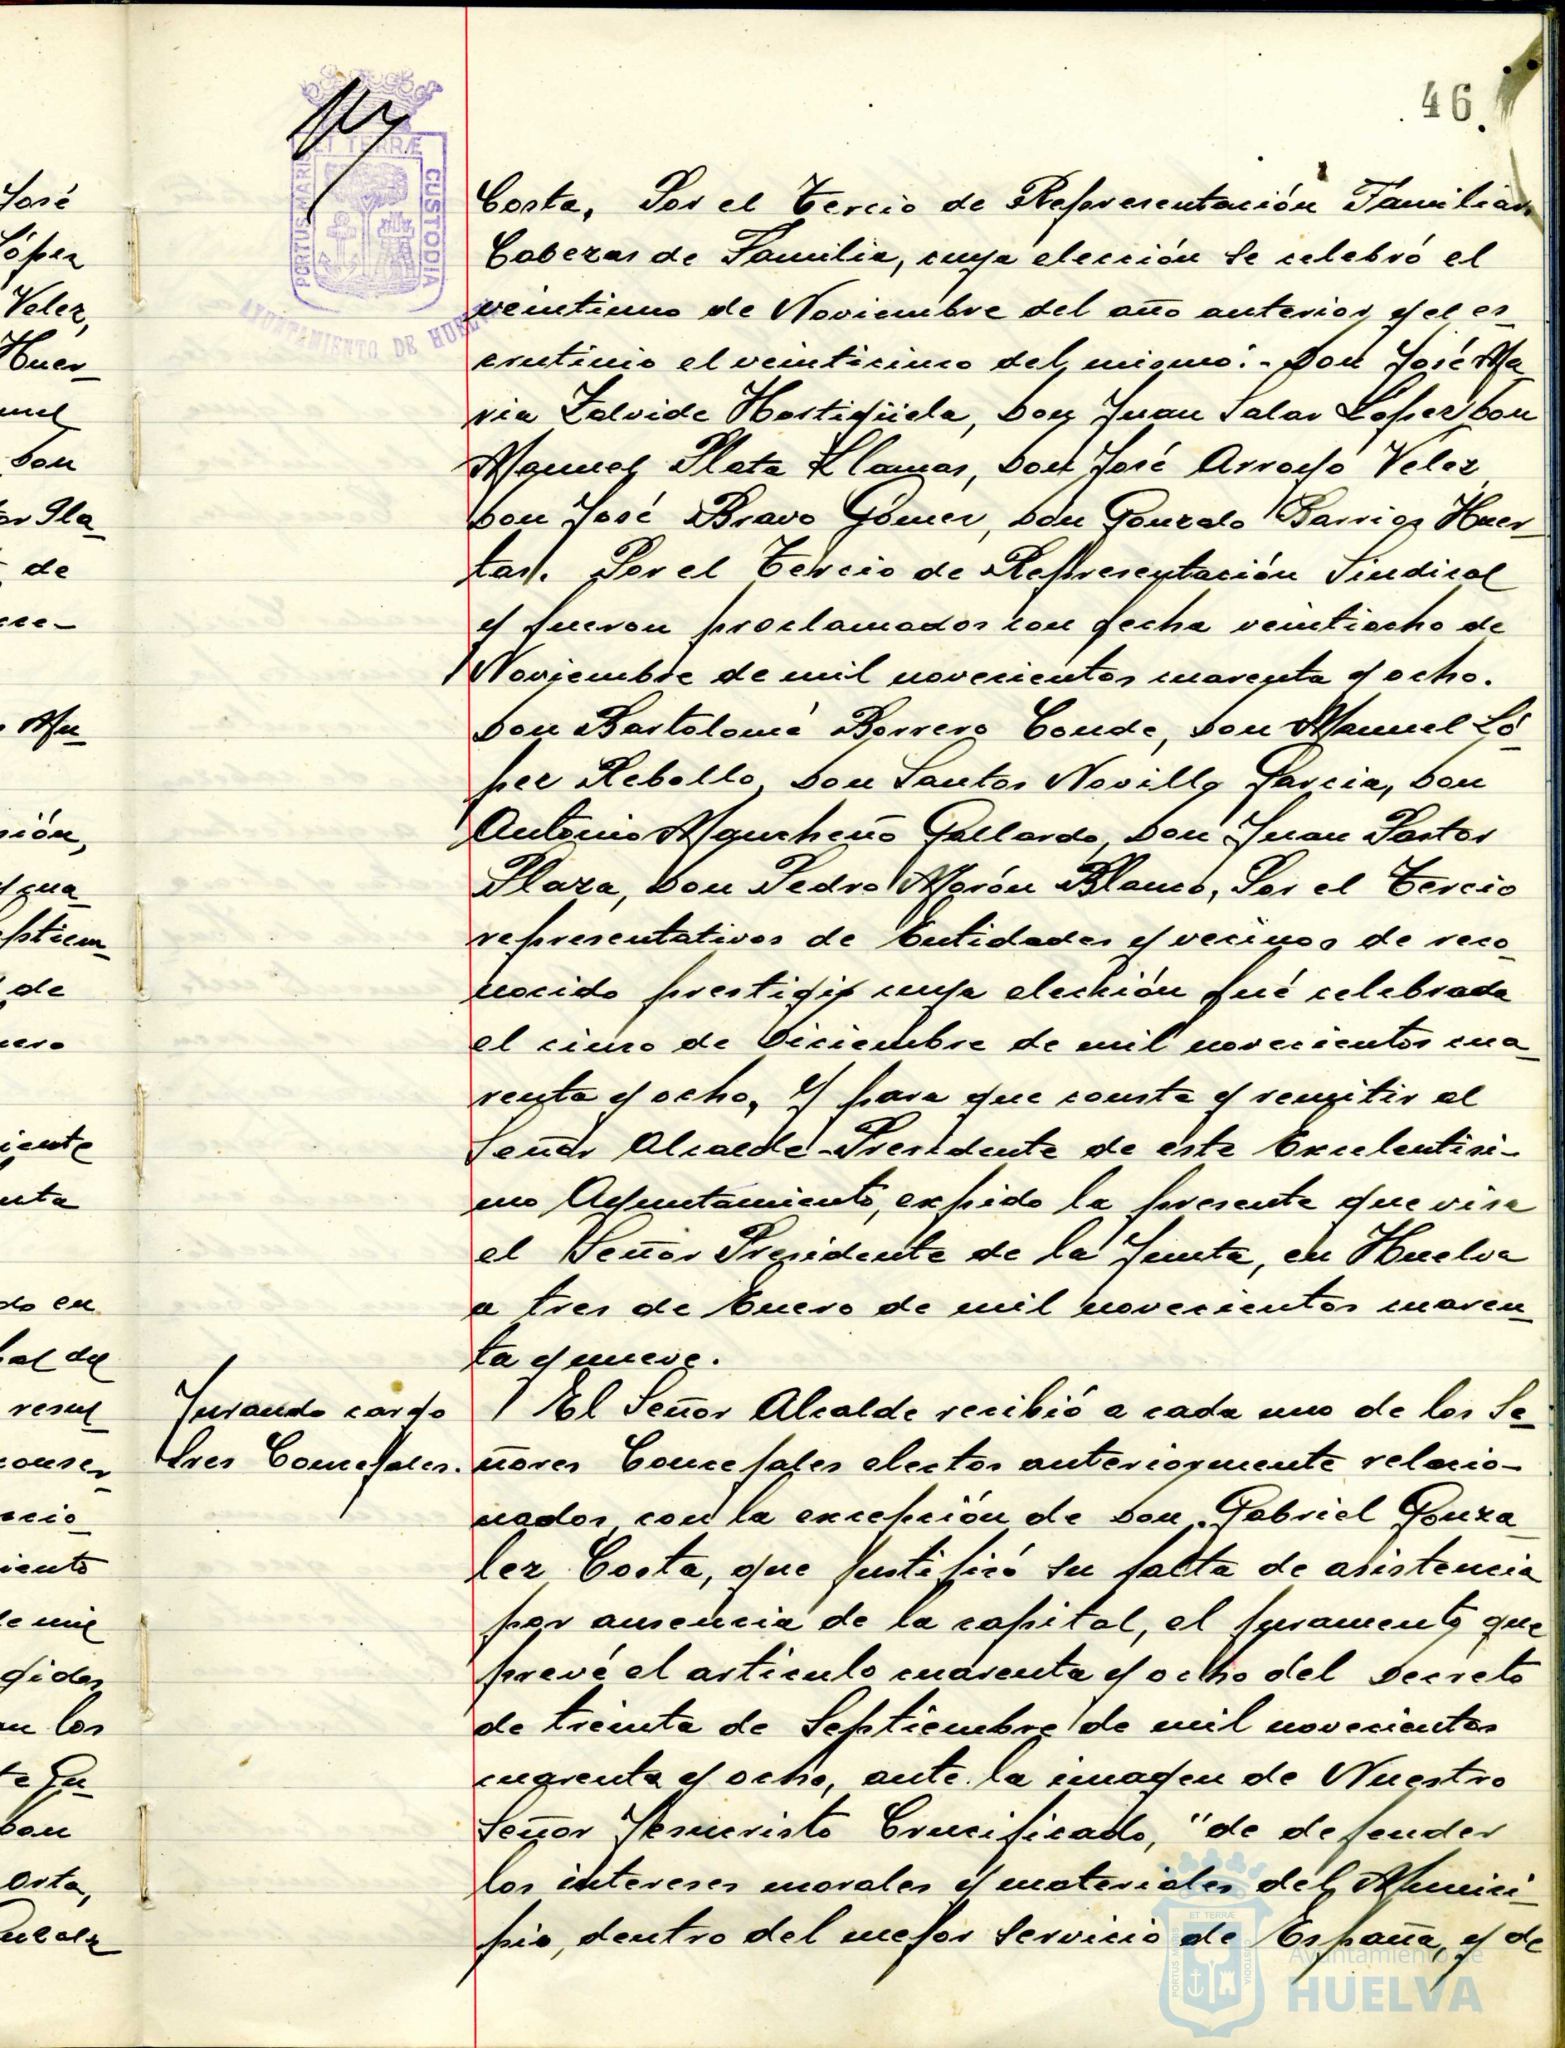 46.
PORTUS MARIS ET TERRÆ CUSTODIA
AYUNTAMIENTO DE HUELVA
José
López
Velez,
Huer-
don
de
sión,
de
iente
do en
resul
iento
de mil
gidos
los
don
Costa, Por el Tercio de Representación Familiar,
Cabezas de Familia, cuya elección se celebró el
veintiuno de Noviembre del año anterior y el es-
crutinio el veinticinco del mismo:- Don José Ma-
ria Zalvide Hostigüela, Don Juan Salas López, Don
Manuel Plata Llamas, Don José Arroyo Velez,
Don José Bravo Gómez, Don Gonzalo Barriga Huer-
tas. Por el Tercio de Representación Sindical
y fueron proclamados con fecha veintiocho de
Noviembre de mil novecientos cuarenta y ocho.
Don Bartolomé Borrero Conde, Don Manuel Ló-
pez Rebollo, Don Santos Novillo Garcia, Don
Antonio Mancheño Gallardo, Don Juan Pastor
Plaza, Don Pedro Morón Blanco, Por el Tercio
representativos de Entidades y vecinos de reco-
nocido prestigio cuya elección fué celebrada
el cinco de Diciembre de mil novecientos cua-
renta y ocho, Y para que conste y remitir al
Señor Alcalde-Presidente de este Excelentisi-
mo Ayuntamiento, expido la presente que visa
el Señor Presidente de la Junta, en Huelva
a tres de Enero de mil novecientos cuaren-
ta y nueve.
Jurando cargo
sres Concejales.
El Señor Alcalde recibió a cada uno de los Se-
ñores Concejales electos anteriormente relacio-
nados, con la excepción de Don Gabriel Gonza-
lez Costa, que justificó su falta de asistencia
por ausencia de la capital, el juramento que
prevé el articulo cuarenta y ocho del Decreto
de treinta de Septiembre de mil novecientos
cuarenta y ocho, ante la imagen de Nuestro
Señor Jesucristo Crucificado, "de defender
los intereses morales y materiales del Munici-
pio, dentro del mejor servicio de España, y de
PORTUS MARIS ET TERRÆ CUSTODIA
Ayuntamiento de
HUELVA